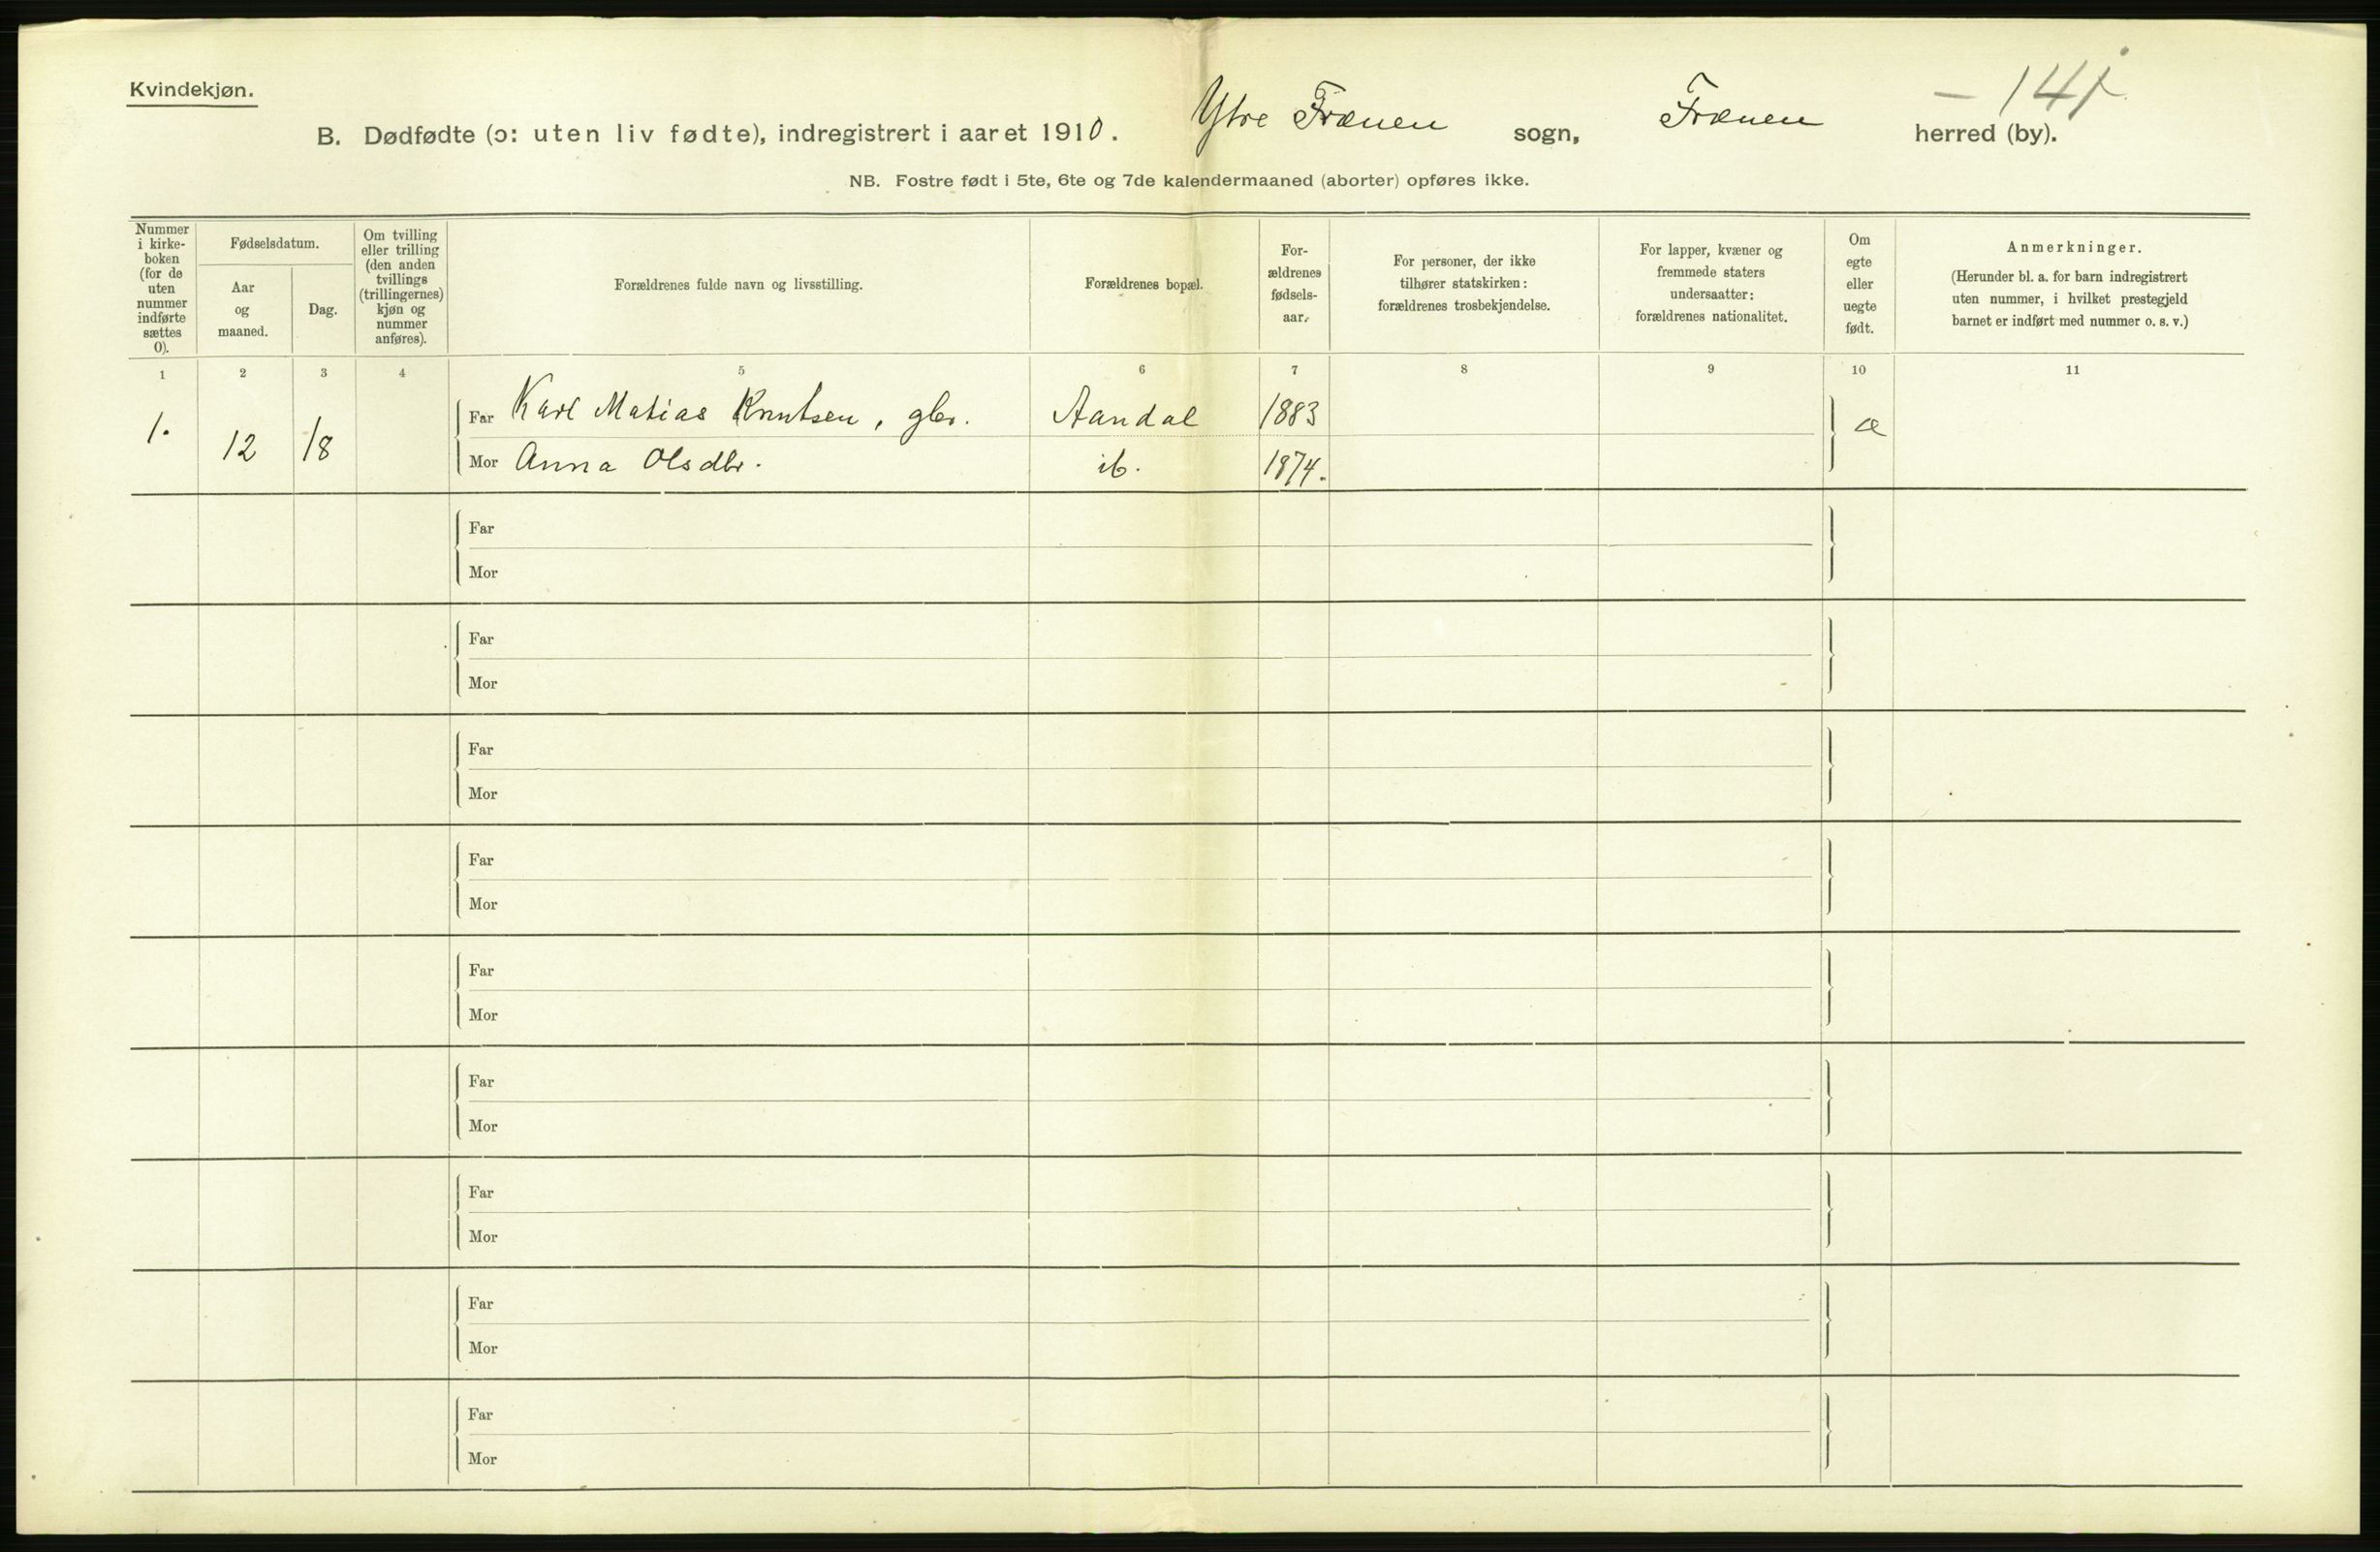 Kvindekjøn.
– 141
B. Dødfødte (ɔ: uten liv fødte), indregistrert i aaret 1910. Ytre Frænen sogn, Frænen herred (by).
NB. Fostre født i 5te, 6te og 7de kalendermaaned (aborter) opføres ikke.
Nummer
i kirke-
boken
(for de
uten
nummer
indførte
sættes
0).
Fødselsdatum.
Aar
og
maaned.
Dag.
Om tvilling
eller trilling
(den anden
tvillings
(trillingernes)
kjøn og
nummer
anføres).
Forældrenes fulde navn og livsstilling.
Forældrenes bopæl.
For-
ældrenes
fødsels-
aar.
For personer, der ikke
tilhører statskirken:
forældrenes trosbekjendelse.
For lapper, kvæner og
fremmede staters
undersaatter:
forældrenes nationalitet.
Om
egte
eller
uegte
født.
Anmerkninger.
(Herunder bl. a. for barn indregistrert
uten nummer, i hvilket prestegjeld
barnet er indført med nummer o. s. v.)
1 2 3 4 5 6 7 8 9 10 11
1. 12 18 Far Karl Matias Knutsen, gbr. Aandal 1883 æ
Mor Anna Olsdtr. ib. 1874.
Far
Mor
Far
Mor
Far
Mor
Far
Mor
Far
Mor
Far
Mor
Far
Mor
Far
Mor
Far
Mor